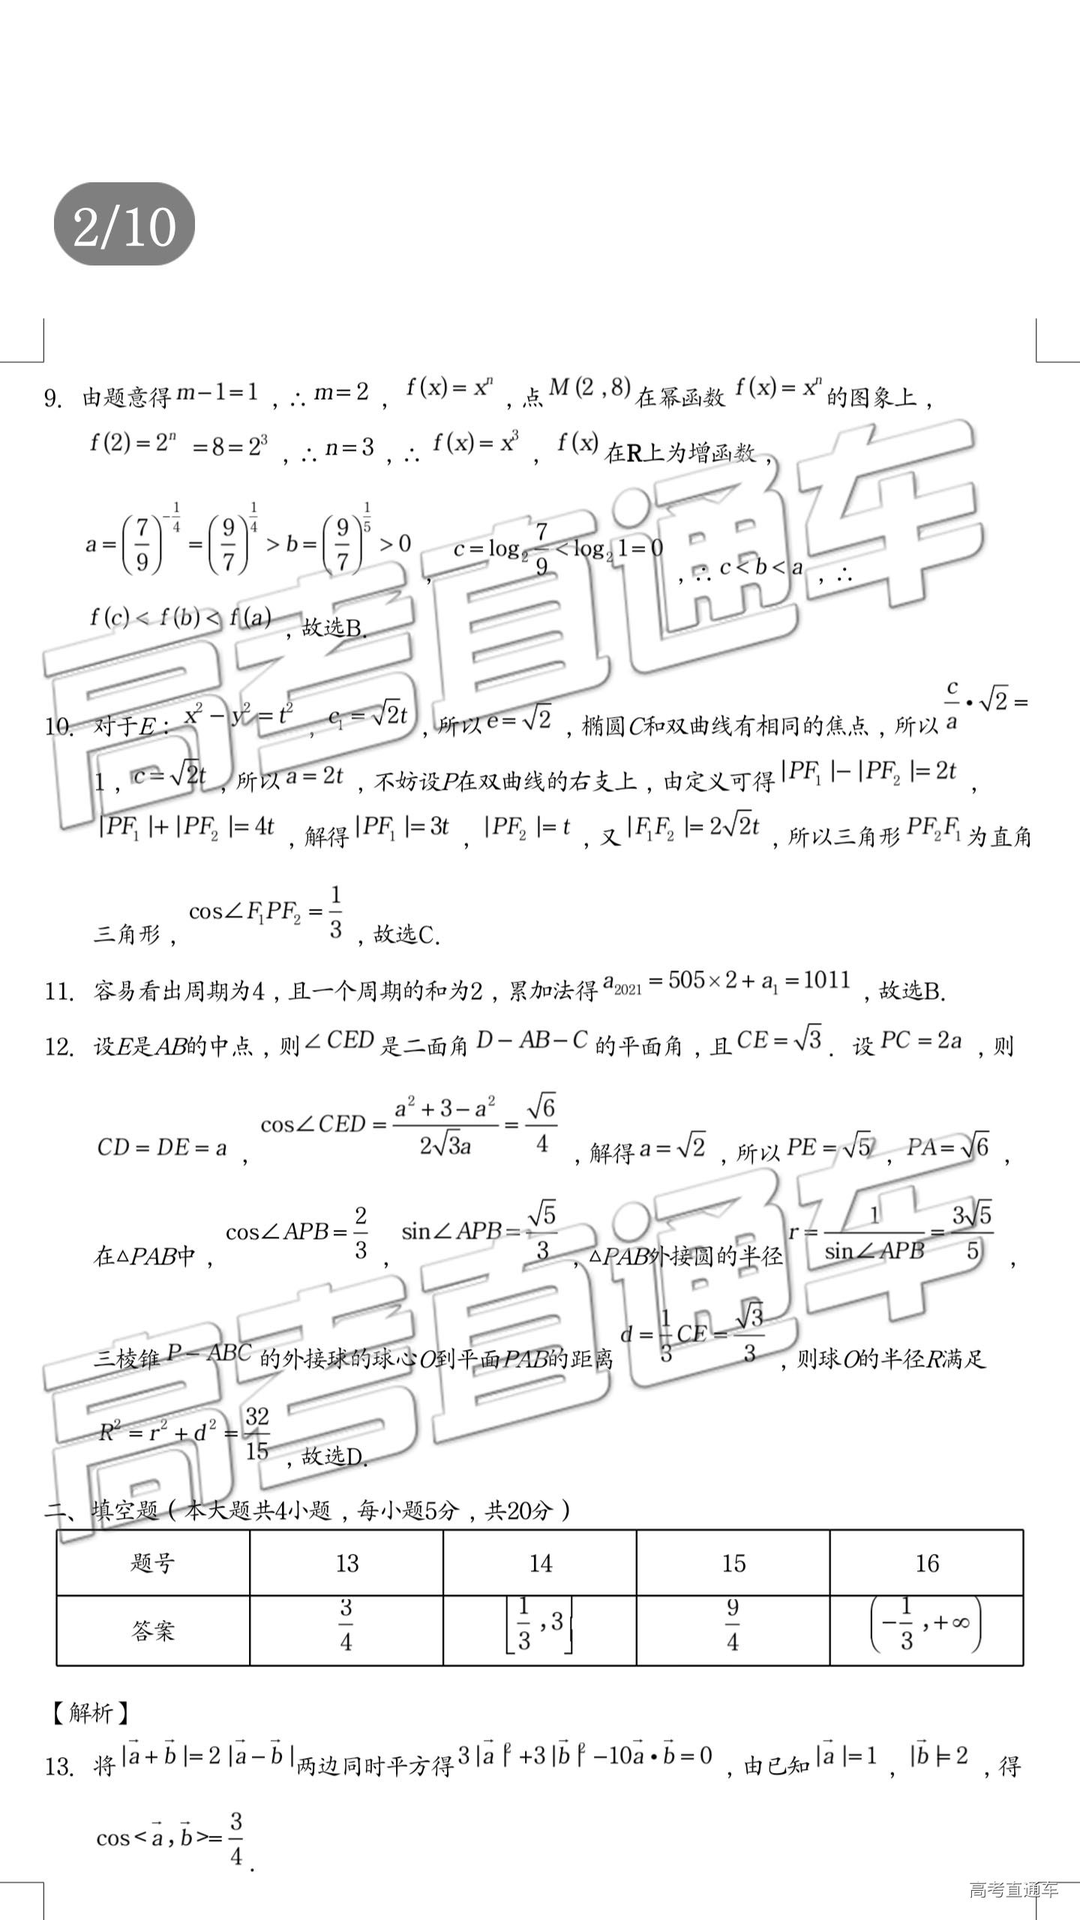 2/10
9. 由题意得 m−1=1，∴ m=2， f(x)=xⁿ，点 M(2,8) 在幂函数 f(x)=xⁿ 的图象上，
f(2)=2ⁿ =8=2³，∴ n=3，∴ f(x)=x³， f(x) 在R上为增函数，
a=(7/9)^(-1/4)=(9/7)^(1/4)>b=(9/7)^(1/5)>0， c=log₂ 7/9<log₂1=0，∴ c<b<a，∴
f(c)<f(b)<f(a)，故选B.
10. 对于E：x²−y²=t²， c₁=√2t，所以 e=√2，椭圆C和双曲线有相同的焦点，所以 c/a•√2=
1，c=√2t，所以 a=2t，不妨设P在双曲线的右支上，由定义可得 |PF₁|−|PF₂|=2t，
|PF₁|+|PF₂|=4t，解得 |PF₁|=3t， |PF₂|=t，又 |F₁F₂|=2√2t，所以三角形 PF₂F₁ 为直角
三角形， cos∠F₁PF₂=1/3，故选C.
11. 容易看出周期为4，且一个周期的和为2，累加法得 a₂₀₂₁=505×2+a₁=1011，故选B.
12. 设E是AB的中点，则∠CED 是二面角 D−AB−C 的平面角，且 CE=√3．设 PC=2a，则
CD=DE=a， cos∠CED=(a²+3−a²)/(2√3a)=√6/4，解得 a=√2，所以 PE=√5， PA=√6，
在△PAB中， cos∠APB=2/3， sin∠APB=√5/3，△PAB外接圆的半径 r=1/sin∠APB=3√5/5，
三棱锥 P−ABC 的外接球的球心O到平面PAB的距离 d=1/3CE=√3/3，则球O的半径R满足
R²=r²+d²=32/15，故选D.
二、填空题（本大题共4小题，每小题5分，共20分）
题号 13 14 15 16
答案 3/4 [1/3,3] 9/4 (−1/3,+∞)
【解析】
13. 将 |a⃗+b⃗|=2|a⃗−b⃗| 两边同时平方得 3|a⃗|²+3|b⃗|²−10a⃗•b⃗=0，由已知 |a⃗|=1， |b⃗|=2，得
cos<a⃗,b⃗>=3/4.
高考直通车
高考直通车
高考直通车